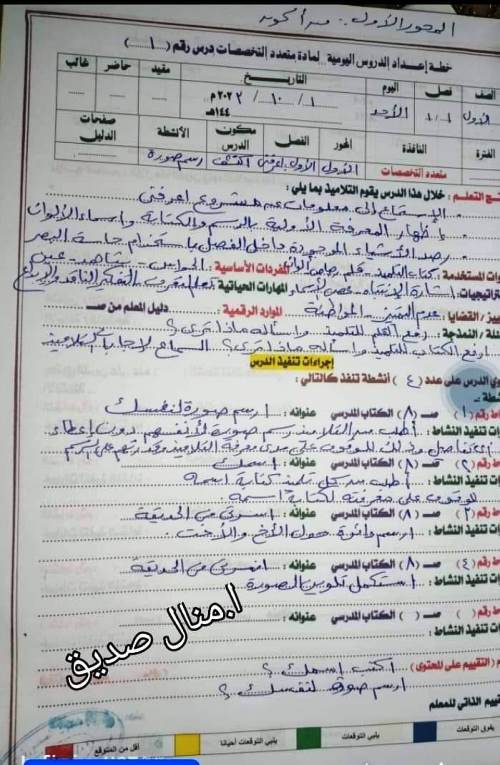 المحور الأول : من أكون
خطة إعداد الدروس اليومية لمادة متعدد التخصصات درس رقم ( ١ )
الصف فصل اليوم التاريخ مقيد حاضر غائب
الأول ١/١ الأحد ١ / ١٠ / ٢٠٢٣م
١٤٤هـ
الفترة النافذة المحور الفصل مكون الدرس الأنشطة صفحات الدليل
متعدد التخصصات الأول الأول اكتشف رسم صورة
نتج التعلم : خلال هذا الدرس يقوم التلاميذ بما يلي :
الاستماع إلى معلومات عن مشروع اعرفني
إظهار المعرفة الأولية بالرسم والكتابة وأسماء الألوان
رصد الأشياء الموجودة داخل الفصل باستخدام حاسة البصر
وات المستخدمة : كتاب التلميذ - قلم رصاص المفردات الأساسية : الحواس -
تراتيجيات : إشارة الانتباه - المهارات الحياتية :
يز / القضايا : عدم التمييز - المواطنة الموارد الرقمية : دليل المعلم من صـ
ئلة / النمذجة : رفع القلم للتلاميذ واسأله ماذا ترى ؟
ارفع الكتاب للتلاميذ واسأله ماذا ترى ؟ السماع لإجابات التلاميذ
إجراءات تنفيذ الدرس
ي الدرس على عدد ( ٤ ) أنشطة تنفذ كالتالي :
شطة :
اط رقم ( ١ ) صـ ( ٨ ) الكتاب المدرسي عنوانه : ارسم صورة لنفسك
ات تنفيذ النشاط : أطلب من التلاميذ رسم صورة لأنفسهم دون إعطاء
أي تفاصيل وذلك للوقوف على مدى معرفة التلاميذ وقدرتهم على الرسم
اط رقم ( ٢ ) صـ ( ٨ ) الكتاب المدرسي عنوانه : اسمك
ات تنفيذ النشاط : أطلب من كل تلميذ كتابة اسمه
للوقوف على معرفته لكتابة اسمه
اط رقم ( ٣ ) صـ ( ٨ ) الكتاب المدرسي عنوانه : أسرتي في الحديقة
ات تنفيذ النشاط : ارسم دائرة حول الأخ والأخت
اط رقم ( ٤ ) صـ ( ٨ ) الكتاب المدرسي عنوانه : أسرتي في الحديقة
ات تنفيذ النشاط : استكمل تلوين الصورة
اط رقم ( ) صـ ( ) الكتاب المدرسي عنوانه :
ات تنفيذ النشاط :
م ( التقييم على المحتوى ) : اكتب اسمك ؟
ارسم صورة لنفسك ؟
قييم الذاتي للمعلم
يفوق التوقعات يلبي التوقعات يلبي التوقعات أحيانا أقل من المتوقع
ا.منال صديق